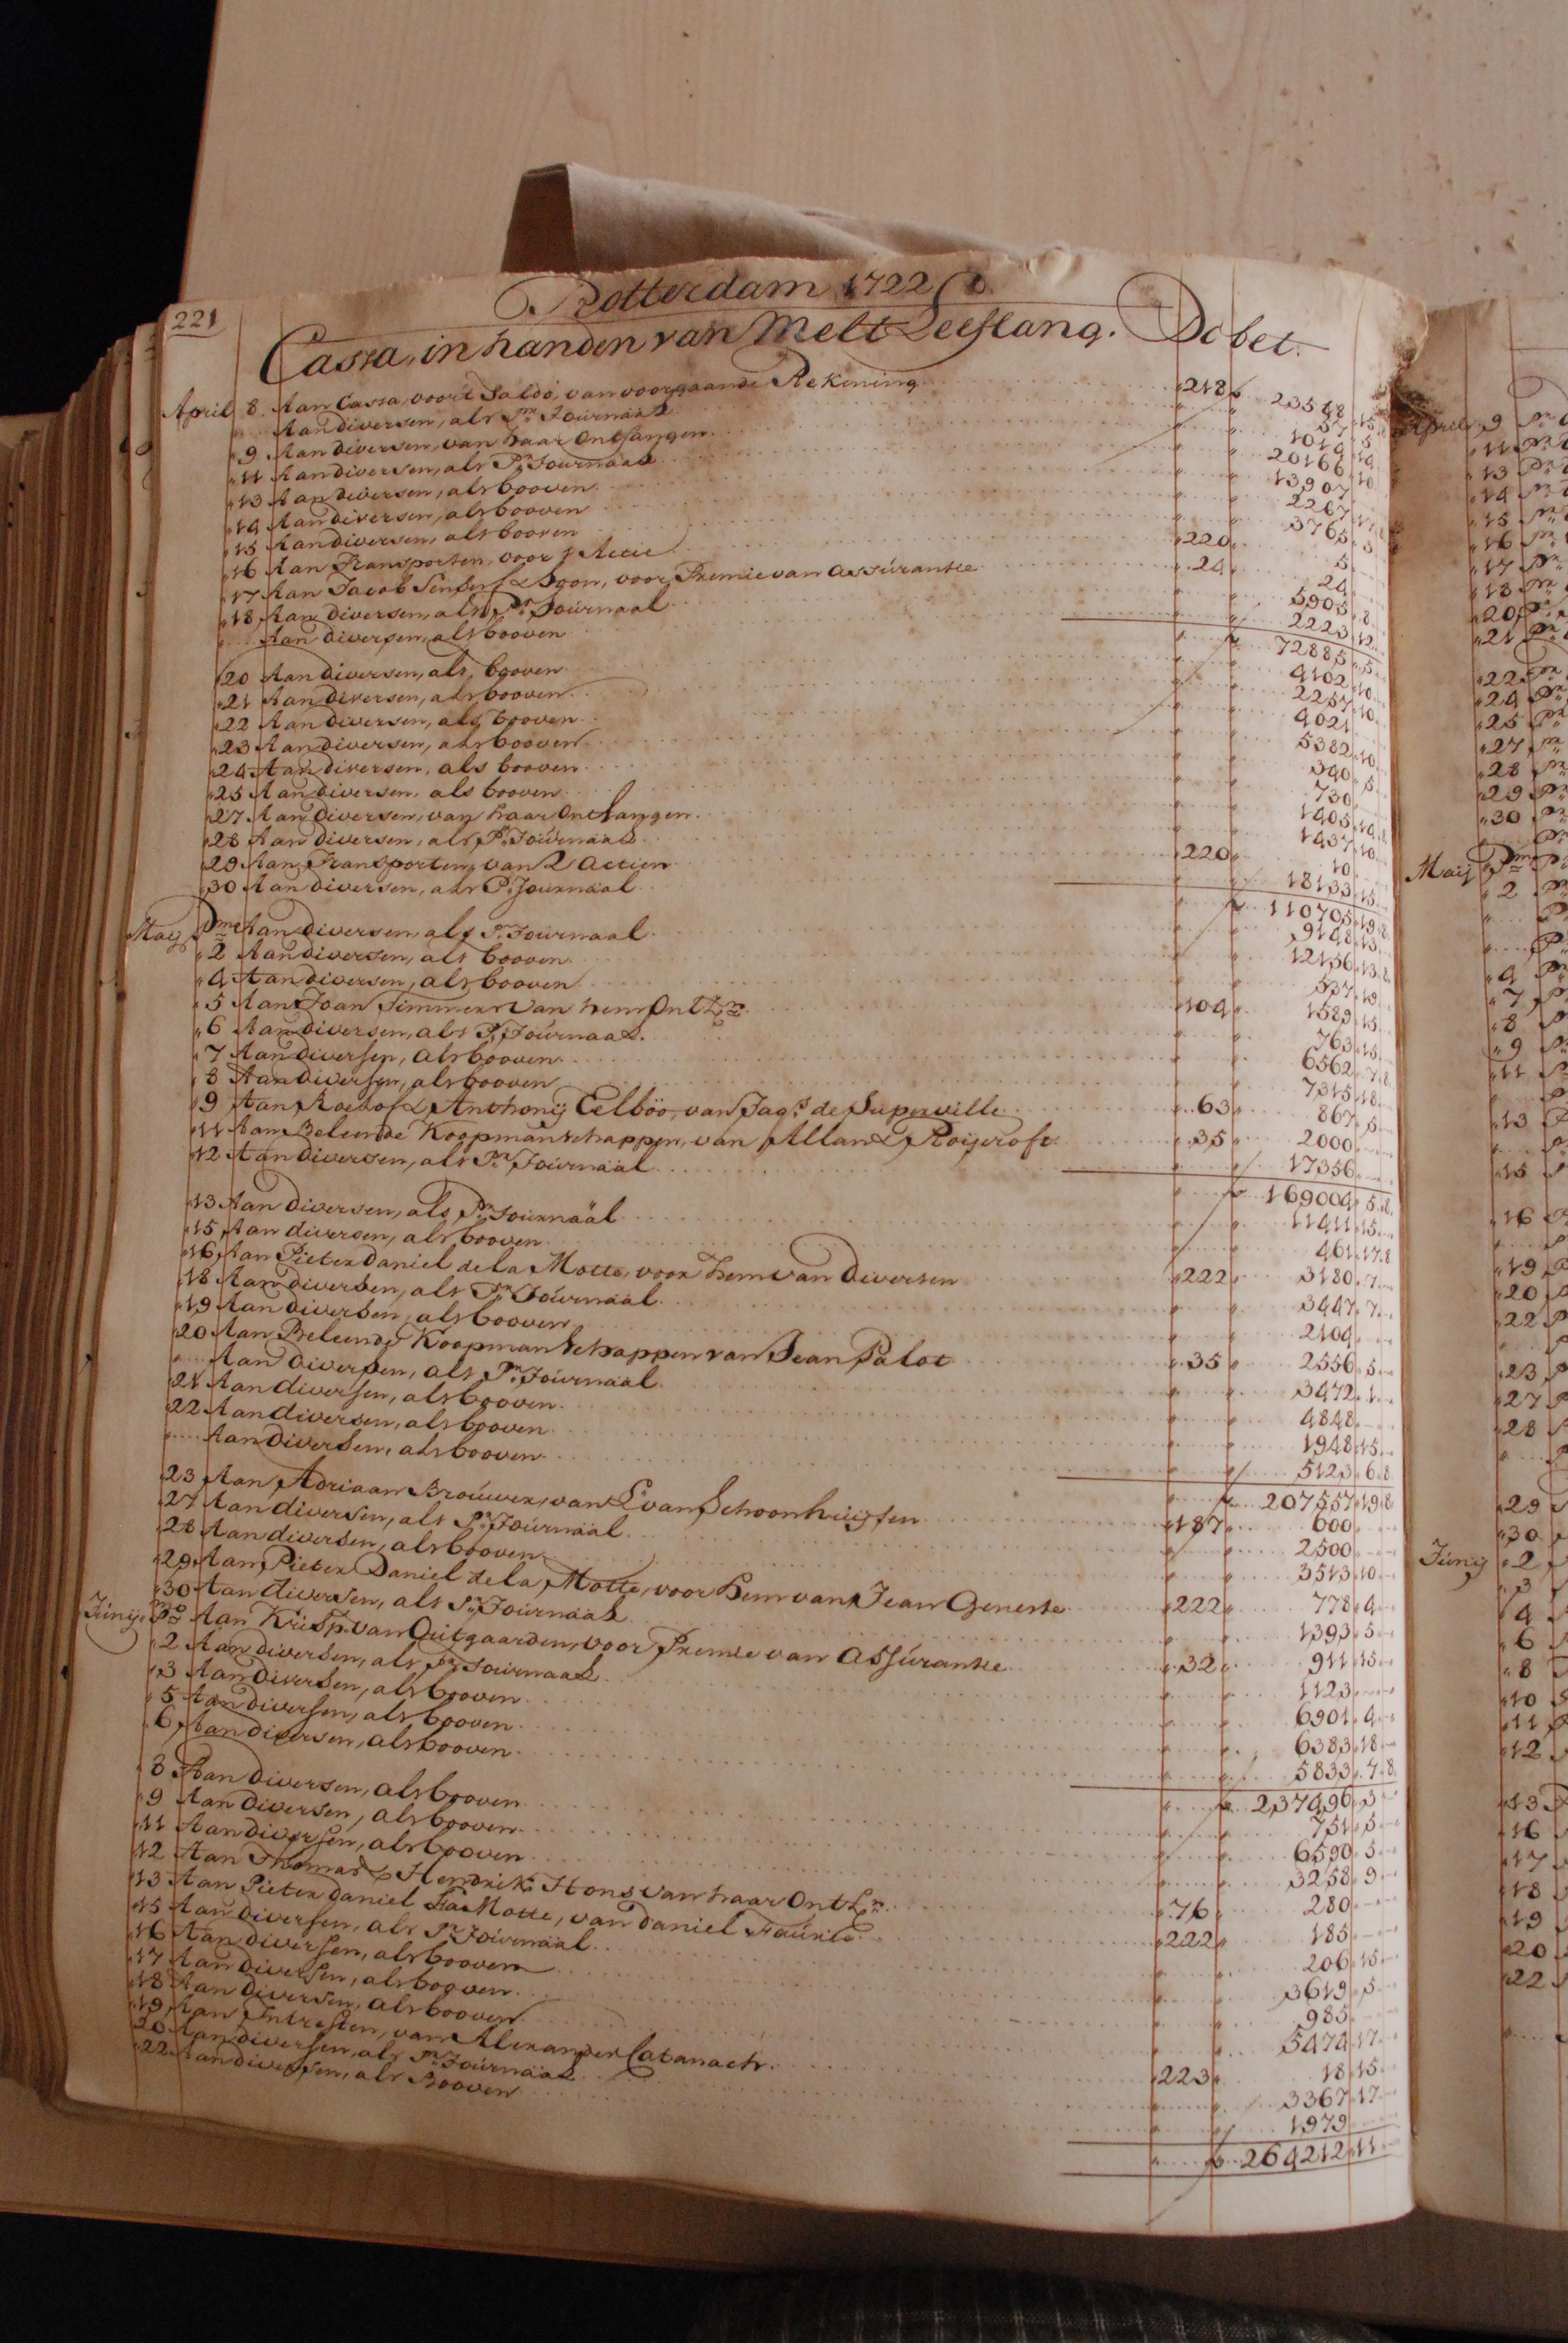 221
Rotterdam 1722
Cassa, in handen van Melt Leeflang. Debet.
April 8 Aan Cassa, voor 't Saldo, van voorgaande Rekening 218 23548 15
Aan diversen, als Pr. Journaal 57 5
9 Aan diversen, van haar Ontfangen 1014 19
11 Aan diversen, als Pr. Journaal 20166 10
13 Aan diversen, als booven 13907
14 Aan diversen, als booven 2267
15 Aan diversen, als booven 3765 5
16 Aan Transporten, voor 1 Actie 220 5
17 Aan Jacob & Soon, voor Premie van assúrantie 24 24
18 Aan diversen, als Pr. Journaal 5905 8
Aan diversen, als booven 2223 12
72885 5
20 Aan diversen, als booven 4102 10
21 Aan diversen, als booven 2257 10
22 Aan diversen, als booven 4021
23 Aan diversen, als booven 5382 10
24 Aan diversen, als booven 340 5
25 Aan diversen, als booven 730
27 Aan diversen, van haar Ontfangen 1405 14 8
28 Aan diversen, als Pr. Journaal 1437 10
29 Aan Transporten, van 2 actien 220 10
30 Aan diversen, als Pr. Journaal 18133 15
110705 19 8
Maij Pmo Aan diversen, als Pr. Journaal 9148 13
2 Aan diversen, als booven 12156 13 8
4 Aan diversen, als booven 537 19
5 Aan Joan Simmer van hem Ontf. 104 1589 15
6 Aan diversen, als Pr. Journaal 763 15
7 Aan diversen, als booven 6562 7 8
8 Aan diversen, als booven 7315 18
9 Aan Roelof & Anthonij Eelböo, van Jaqs. de Superville 63 867 5
11 Aan Beleende Koopmanschappen, van Allan & Roijcroft 35 2000
12 Aan diversen, als Pr. Journaal 17356
169004 5 8
13 Aan diversen, als Pr. Journaal 11411 15
15 Aan diversen, als booven 461 17 8
16 Aan Pieter Daniel de la Motte, voor hem van diversen 222 3180 7
18 Aan diversen, als Pr. Journaal 3447 7
19 Aan diversen, als booven 2104
20 Aan Beleende Koopmanschappen van Jean Palot 35 2556 5
Aan diversen, als Pr. Journaal 3472 1
21 Aan diversen, als booven 4848
22 Aan diversen, als booven 1948 15
Aan diversen, als booven 5123 6 8
207557 19 8
23 Aan Adriaan Brouwer, van L. van Schoonhuijsen 187 600
27 Aan diversen, als Pr. Journaal 2500
28 Aan diversen, als booven 3513 10
29 Aan Pieter Daniel de la Motte, voor hem van Jean Geneste 222 778 4
30 Aan diversen, als Pr. Journaal 1393 5
Junij Pmo Aan Krisp. van Outgaarden, voor Premie van Assúrantie 32 911 15
2 Aan diversen, als Pr. Journaal 1123
3 Aan diversen, als booven 6901 4
5 Aan diversen, als booven 6383 18
6 Aan diversen, als booven 5833 7 8
237496 3
8 Aan diversen, als booven 751 5
9 Aan diversen, als booven 6590 5
11 Aan diversen, als booven 3258 9
12 Aan Thomas & Hendrik Hons van haar Ontf. 76 280
13 Aan Pieter Daniel La Motte, van Daniel 222 185
15 Aan diversen, als Pr. Journaal 206 15
16 Aan diversen, als booven 3619 5
17 Aan diversen, als booven 985
18 Aan diversen, als booven 5474 17
19 Aan Intresten, van Alexander Catanach 223 18 15
20 Aan diversen, als Pr. Journaal 3367 17
22 Aan diversen, als Booven 1979
264212 11
April 9
11
13
14
15
16
17
18
20
21
22
24
25
27
28
29
30
Maij Pmo
2
4
7
8
9
11
13
15
16
19
20
22
23
27
28
29
30
Junij 2
3
4
6
8
10
11
12
13
16
17
18
19
20
22